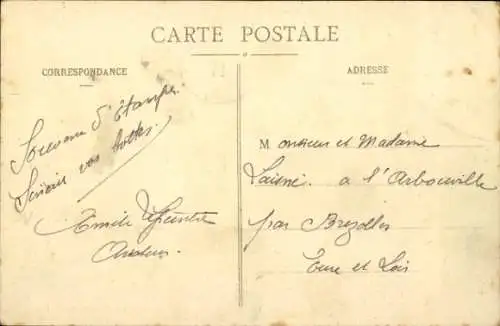 CARTE POSTALE
CORRESPONDANCE
ADRESSE
Souvenir d'Etampes
vos
Emile
Monsieur et Madame
Laisné. a l'Arbouville
par Brezolles
Eure et Loir